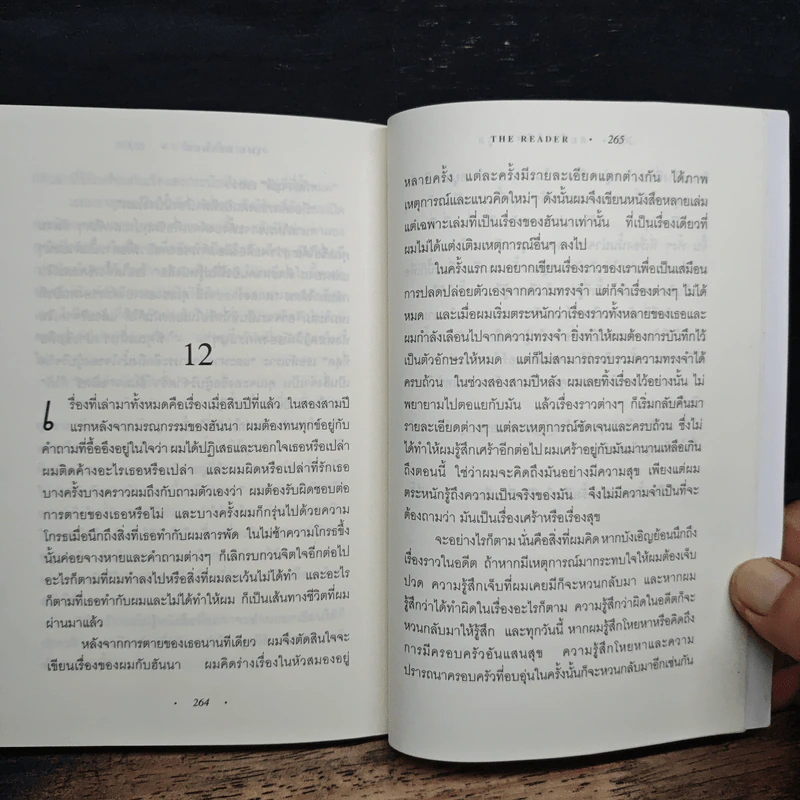 12
เรื่องที่เล่ามาทั้งหมดคือเรื่องเมื่อสิบปีที่แล้ว ในสองสามปี
แรกหลังจากมรณกรรมของฮันนา ผมต้องทนทุกข์อยู่กับ
คำถามที่อื้ออึงอยู่ในใจว่า ผมได้ปฏิเสธและนอกใจเธอหรือเปล่า
ผมติดค้างอะไรเธอหรือเปล่า และผมผิดหรือเปล่าที่รักเธอ
บางครั้งบางคราวผมถึงกับถามตัวเองว่า ผมต้องรับผิดชอบต่อ
การตายของเธอหรือไม่ และบางครั้งผมก็กรุ่นไปด้วยความ
โกรธเมื่อนึกถึงสิ่งที่เธอทำกับผมสารพัด ในไม่ช้าความโกรธขึ้ง
นั้นค่อยจางหายและคำถามต่างๆ ก็เลิกรบกวนจิตใจอีกต่อไป
อะไรก็ตามที่ผมทำลงไปหรือสิ่งที่ผมละเว้นไม่ได้ทำ และอะไร
ก็ตามที่เธอทำกับผมและไม่ได้ทำให้ผม ก็เป็นเส้นทางชีวิตที่ผม
ผ่านมาแล้ว
หลังจากการตายของเธอนานทีเดียว ผมจึงตัดสินใจจะ
เขียนเรื่องของผมกับฮันนา ผมคิดร่างเรื่องในหัวสมองอยู่
• 264 •
THE READER • 265
หลายครั้ง แต่ละครั้งมีรายละเอียดแตกต่างกัน ได้ภาพ
เหตุการณ์และแนวคิดใหม่ๆ ดังนั้นผมจึงเขียนหนังสือหลายเล่ม
แต่เฉพาะเล่มที่เป็นเรื่องของฮันนาเท่านั้น ที่เป็นเรื่องเดียวที่
ผมไม่ได้แต่งเติมเหตุการณ์อื่นๆ ลงไป
ในครั้งแรก ผมอยากเขียนเรื่องราวของเราเพื่อเป็นเสมือน
การปลดปล่อยตัวเองจากความทรงจำ แต่ก็จำเรื่องต่างๆ ไม่ได้
หมด และเมื่อผมเริ่มตระหนักว่าเรื่องราวทั้งหลายของเธอและ
ผมกำลังเลือนไปจากความทรงจำ ยิ่งทำให้ผมต้องการบันทึกไว้
เป็นตัวอักษรให้หมด แต่ก็ไม่สามารถรวบรวมความทรงจำได้
ครบถ้วน ในช่วงสองสามปีหลัง ผมเลยทิ้งเรื่องไว้อย่างนั้น ไม่
พยายามไปตอแยกับมัน แล้วเรื่องราวต่างๆ ก็เริ่มกลับคืนมา
รายละเอียดต่างๆ แต่ละเหตุการณ์ชัดเจนและครบถ้วน ซึ่งไม่
ได้ทำให้ผมรู้สึกเศร้าอีกต่อไป ผมเศร้าอยู่กับมันมานานเหลือเกิน
ถึงตอนนี้ ใช่ว่าผมจะคิดถึงมันอย่างมีความสุข เพียงแต่ผม
ตระหนักรู้ถึงความเป็นจริงของมัน จึงไม่มีความจำเป็นที่จะ
ต้องถามว่า มันเป็นเรื่องเศร้าหรือเรื่องสุข
จะอย่างไรก็ตาม นั่นคือสิ่งที่ผมคิด หากบังเอิญย้อนนึกถึง
เรื่องราวในอดีต ถ้าหากมีเหตุการณ์มากระทบใจให้ผมต้องเจ็บ
ปวด ความรู้สึกเจ็บที่ผมเคยมีก็จะหวนกลับมา และหากผม
รู้สึกว่าได้ทำผิดในเรื่องอะไรก็ตาม ความรู้สึกว่าผิดในอดีตก็จะ
หวนกลับมาให้รู้สึก และทุกวันนี้ หากผมรู้สึกโหยหาหรือคิดถึง
การมีครอบครัวอันแสนสุข ความรู้สึกโหยหาและความ
ปรารถนาครอบครัวที่อบอุ่นในครั้งนั้นก็จะหวนกลับมาอีกเช่นกัน